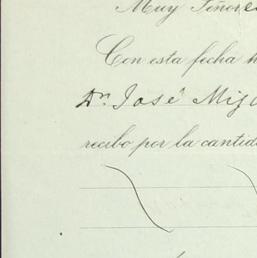 Muy Señores
Con esta fecha h
Dn. José Mig
recibo por la cantid